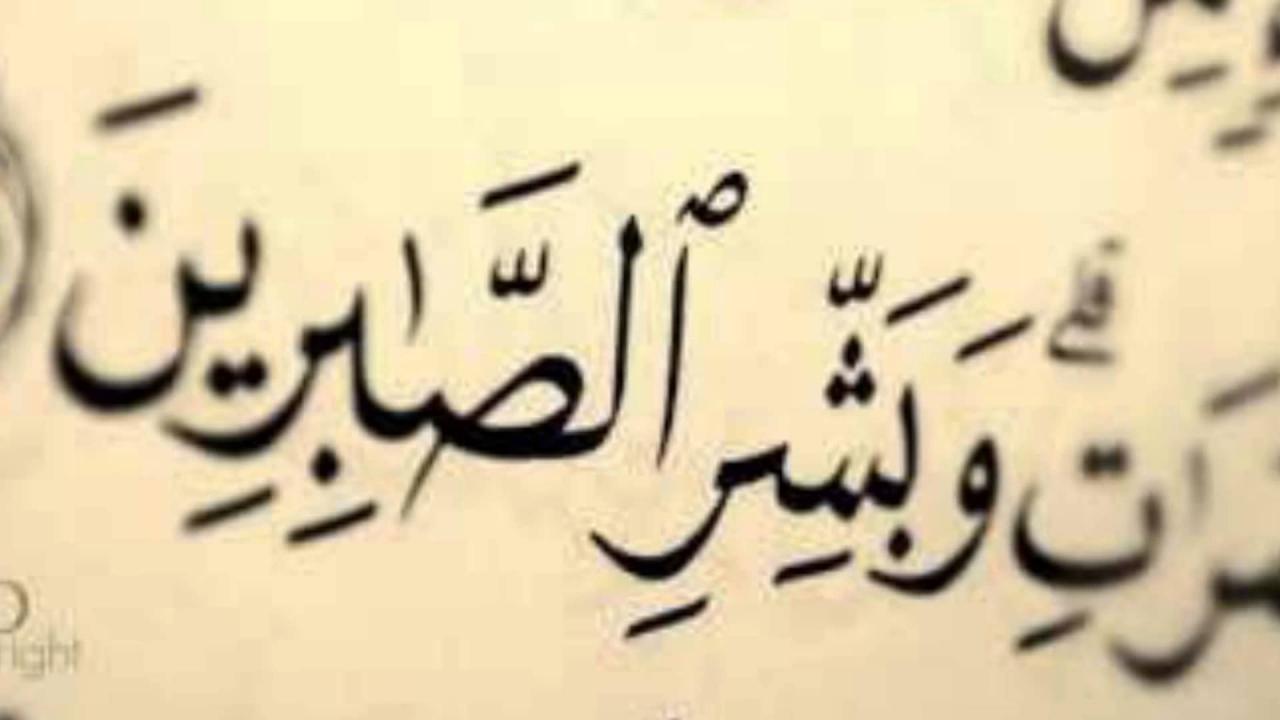 ﺮَٰتِۗ وَبَشِّرِ ٱلصَّـٰبِرِينَ
right